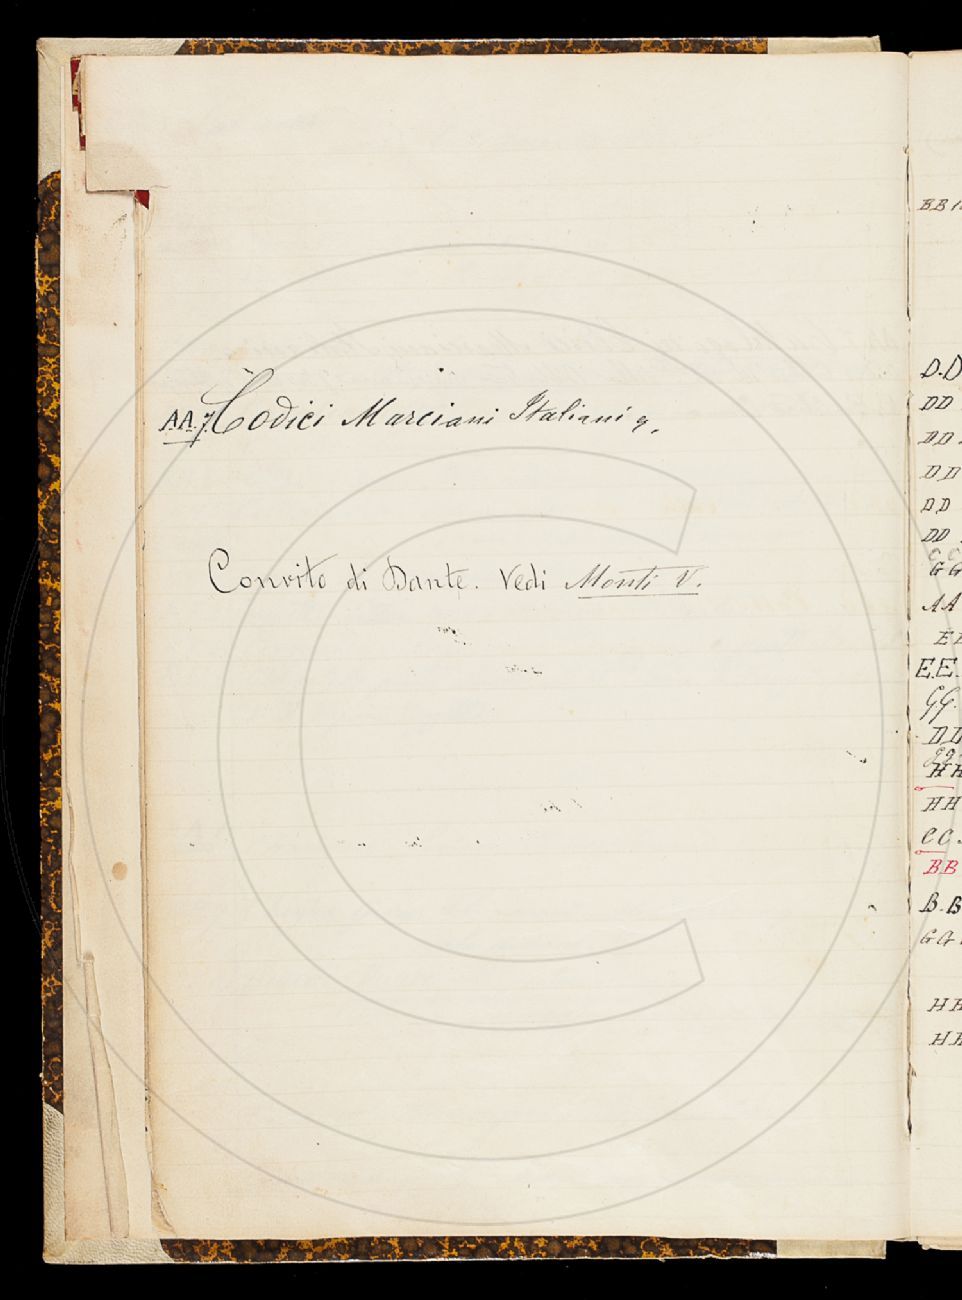 A.A.7. Codici Marciani Italiani 9.
Convito di Dante. Vedi Monti V.
BB
D.D
DD
DD
DD
DD
DD
CC
GG
AA
EE
E.E.
GG.
DD
gg
HH
HH
CC.
BB
B.B
GG
HH
HH